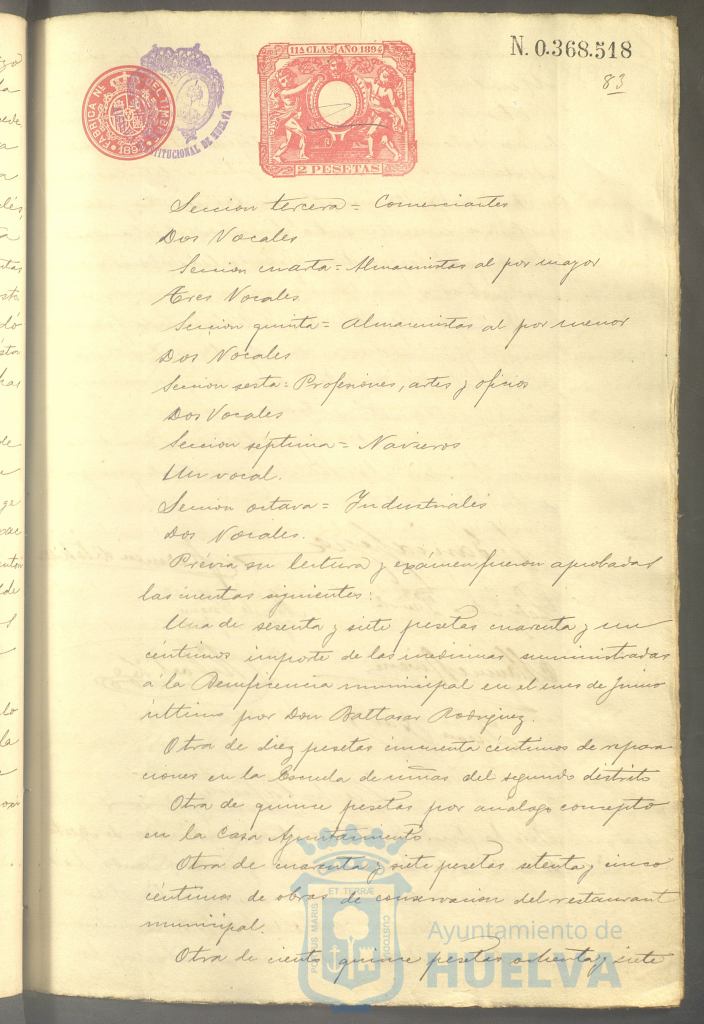 11ª CLAˢᴱ AÑO 1894
N. 0.368.518
83
FABRICA NAL DEL TIMBRE
1893
CONSTITUCIONAL DE HUELVA
2 PESETAS
Seccion tercera = Comerciantes
Dos Vocales
Seccion cuarta = Almacenistas al por mayor
Tres Vocales
Seccion quinta = Almacenistas al por menor
Dos Vocales
Seccion sesta = Profesiones, artes y oficios
Dos Vocales
Seccion séptima = Navieros
Un vocal.
Seccion octava = Industriales
Dos Vocales.
Prévia su lectura y exámen fueron aprobadas
las cuentas siguientes:
Una de sesenta y siete pesetas cuarenta y un
céntimos importe de las medicinas suministradas
á la Beneficencia municipal en el mes de Junio
último por Don Baltasar Rodriguez.
Otra de diez pesetas cincuenta céntimos de repara
ciones en la Escuela de niñas del segundo distrito
Otra de quince pesetas por análogo concepto
en la Casa Ayuntamiento.
Otra de cuarenta y siete pesetas setenta y cinco
céntimos de obras de conservacion del restaurant
municipal.
Otra de ciento quince pesetas ochenta y siete
PORTUS MARIS ET TERRÆ CUSTODIA
Ayuntamiento de
HUELVA